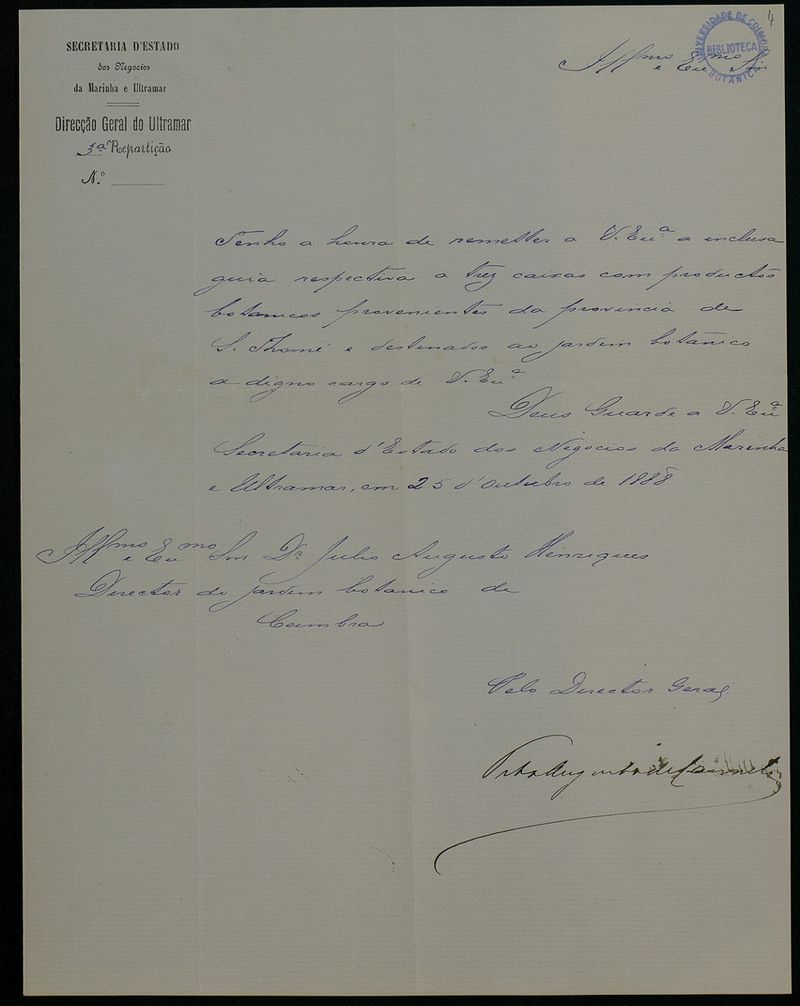 4
UNIVERSIDADE DE COIMBRA
BIBLIOTECA
BOTANICA
SECRETARIA D'ESTADO
dos Negocios
da Marinha e Ultramar
Direcção Geral do Ultramar
3ª Repartição
N.º
Illmo e Exmo Snr
Tenho a honra de remetter a V. Exª a inclusa
guia respectiva a trez caixas com productos
botanicos provenientes da provincia de
S. Thomé e destinados ao jardim botânico
a digno cargo de V. Exª
Deus Guarde a V. Exª
Secretaria d'Estado dos Negocios da Marinha
e Ultramar, em 25 d'Outubro de 1888
Illmo e Exmo Snr Dr Julio Augusto Henriques
Director do jardim botanico de
Coimbra
Pelo Director Geral
Augusto de